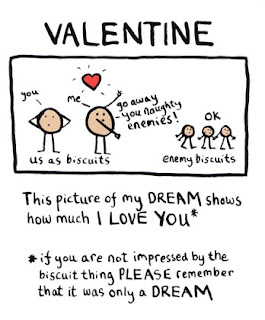 VALENTINE
you
me
go away
you naughty
enemies!
OK
us as biscuits
enemy biscuits
This picture of my DREAM shows
how much I LOVE YOU*
* if you are not impressed by the
biscuit thing PLEASE remember
that it was only a DREAM